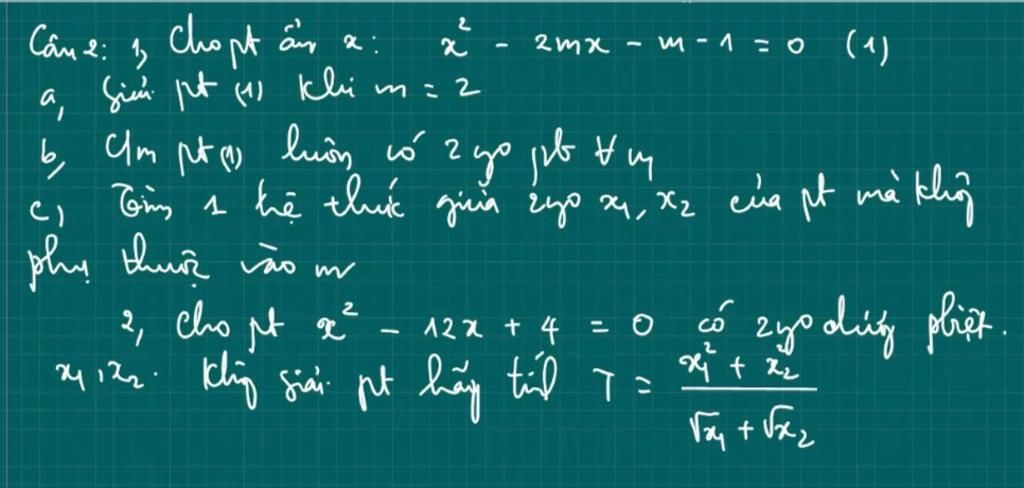 Câu 2: 1, Cho pt ẩn x: x² - 2mx - m - 1 = 0 (1)
a, Giải pt (1) khi m = 2
b, CM pt (1) luôn có 2 ngo pb ∀ m
c, Tìm 1 hệ thức giữa 2 ngo x₁, x₂ của pt mà không
phụ thuộc vào m
2, Cho pt x² - 12x + 4 = 0 có 2 ngo dương phbiệt.
x₁, x₂. Không giải pt hãy tính T = (x₁² + x₂²) / (√x₁ + √x₂)